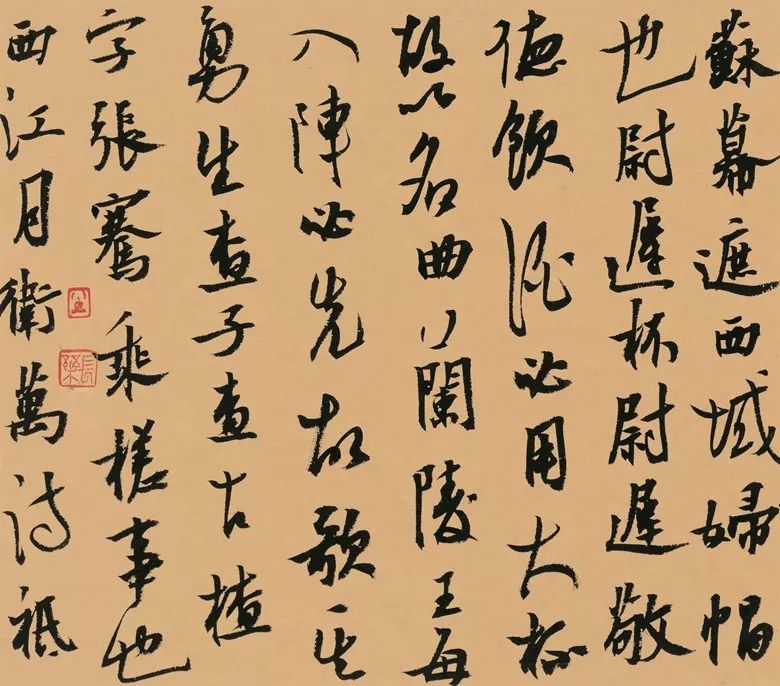 蘇幕遮西域婦帽
也尉遲杯尉遲敬
德飲酒必用大杯
故以名曲以闌陵王每
入陣必先故歌其
勇生查子查古楂
字張騫乘槎事也
西江月衛萬詩祗